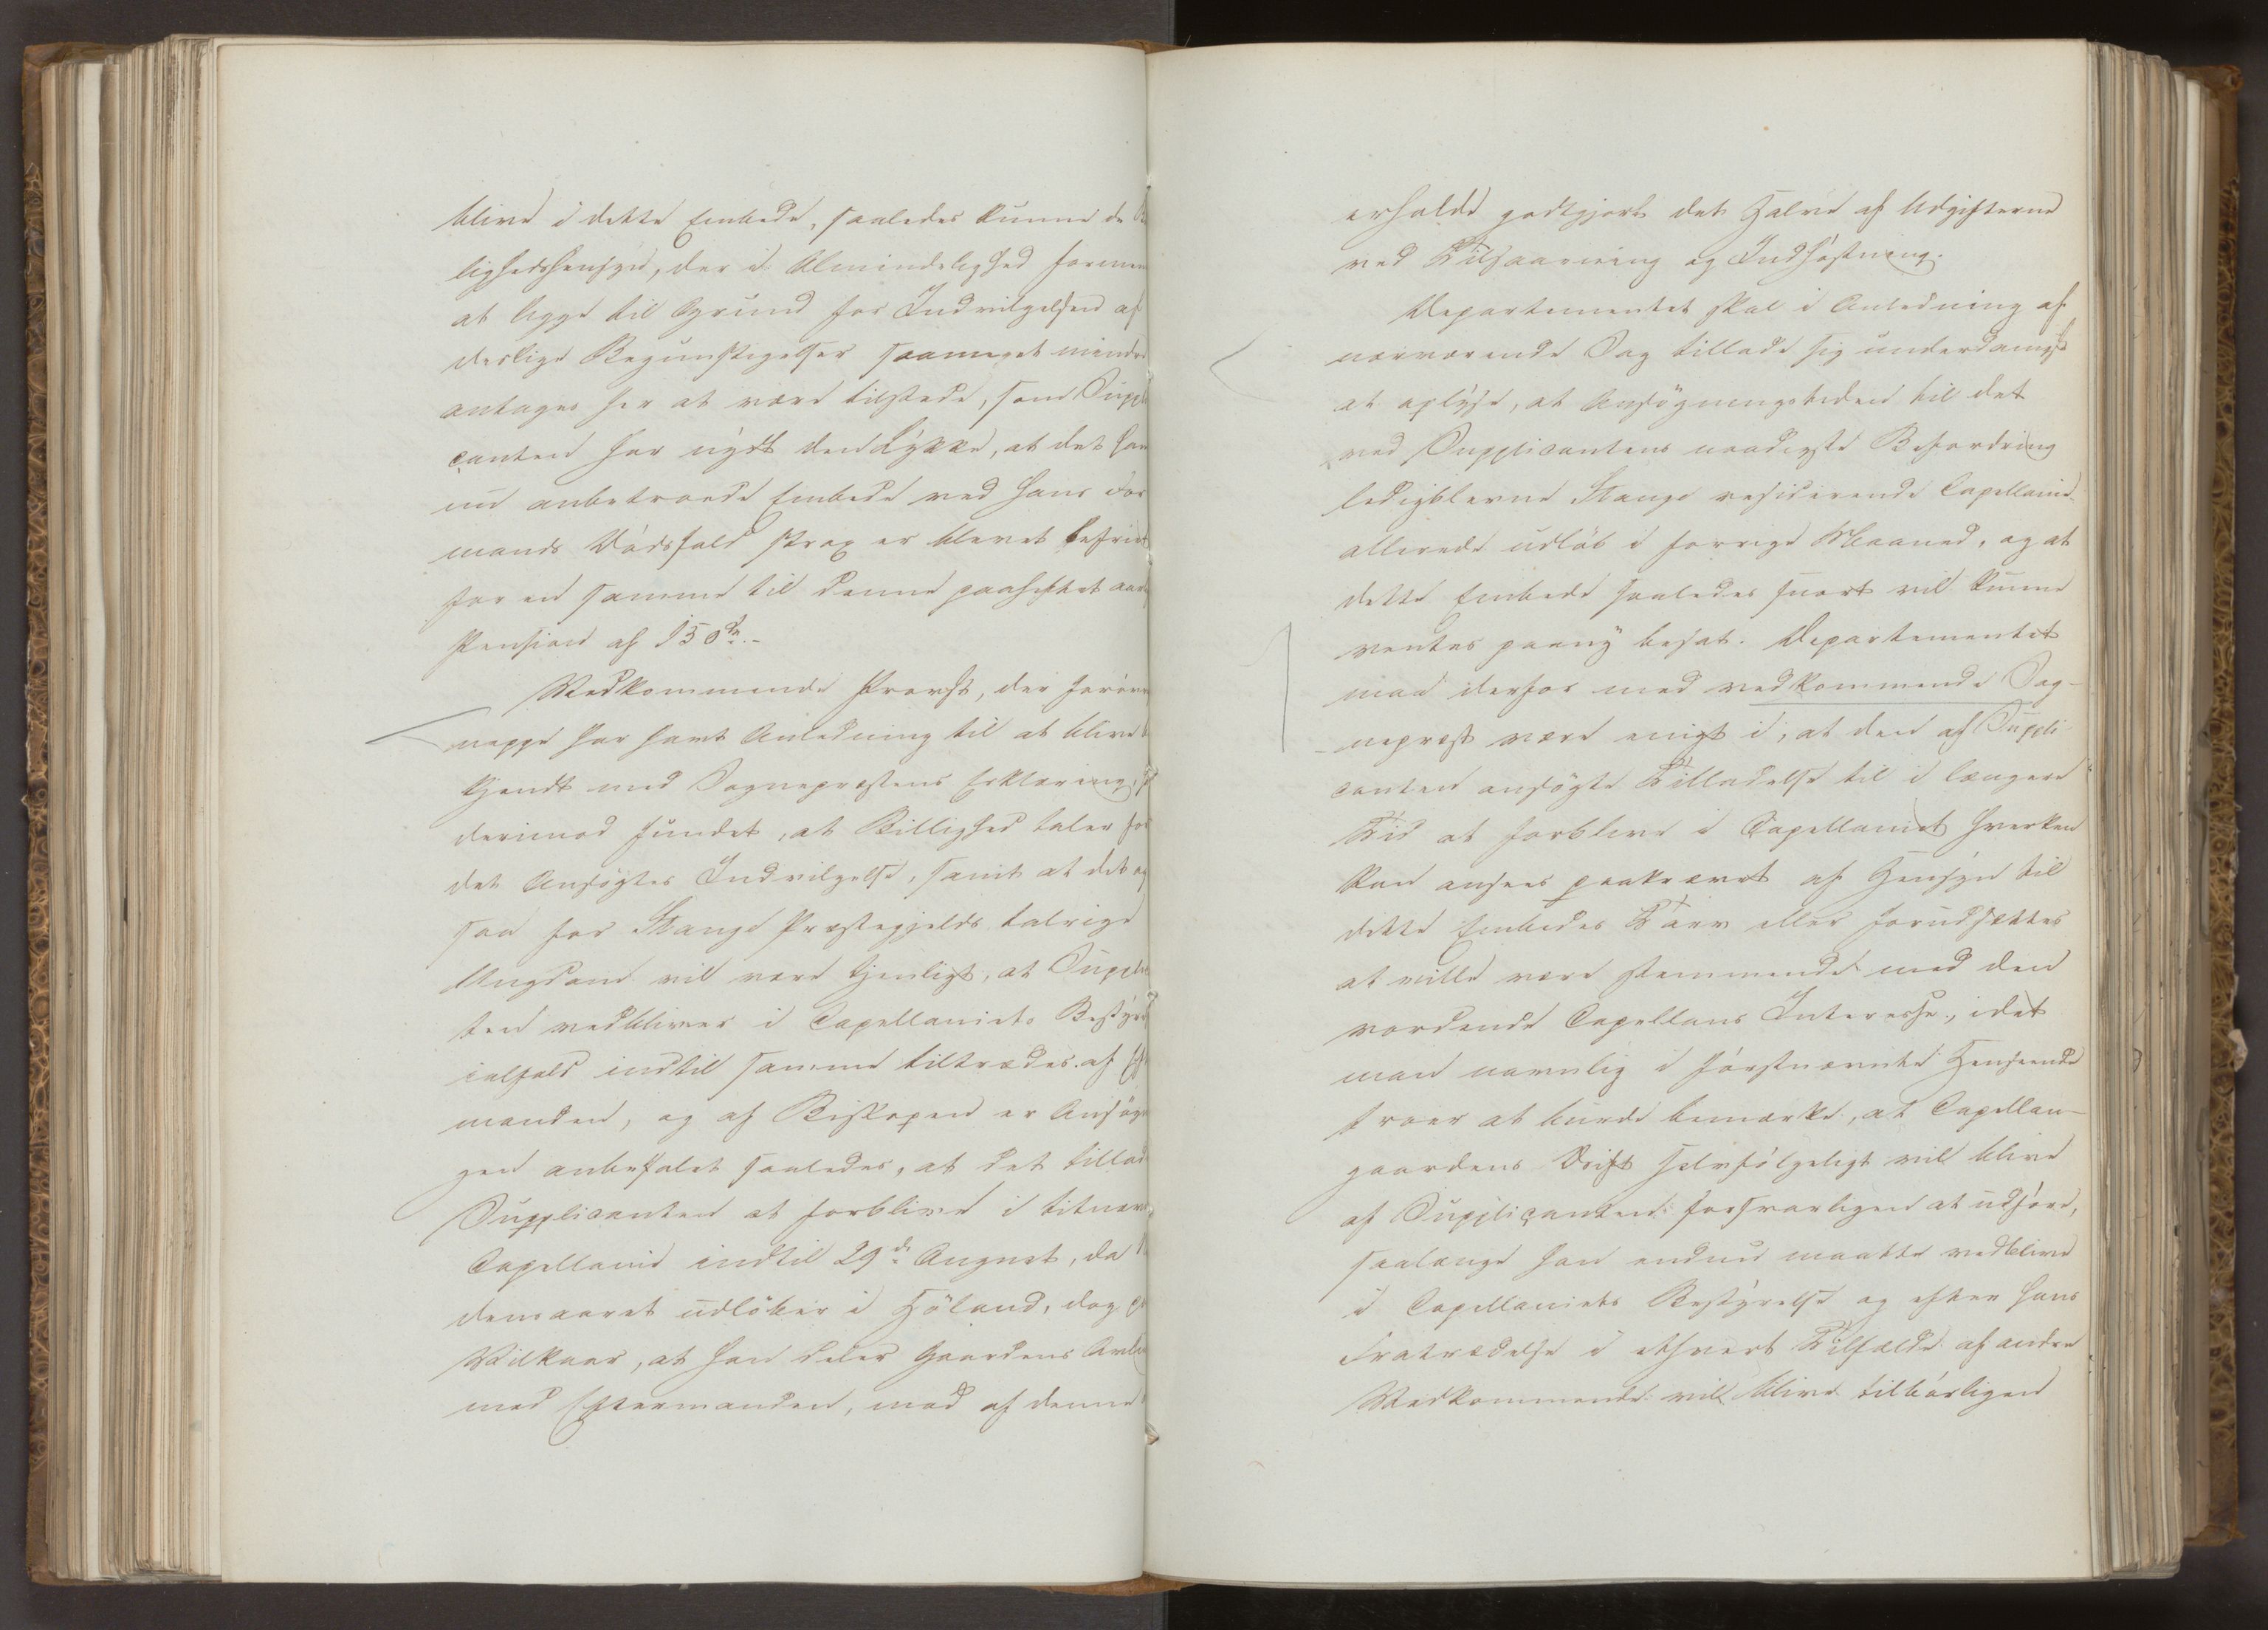 blive i dette Embede, saaledes kunne de Bil
lighedshensyn, der i Almindelighed formene
at ligge til Grund for Indvilgelsen af
deslige Begunstigelser saameget mindre
antages her at være tilstede, som Suppli
canten har nydt den Lykke, at det ham
nu anbetroede Embede ved hans For
mands Dödsfald strax er blevet befriet
for en samme til denne paaheftet aarlig
Pension af 150 Sp.
Vedkommende Provst, der foröv
neppe har havt Anledning til at blive be
kjendt med Sognepræstens Erklæring,
derimod fundet, at Billighed taler for
det Ansögtes Indvilgelse, samt at det og
saa for Stange Præstegjelds talrige
Ungdom vil være tjenligt, at Supplican
ten vedbliver i Capellaniets Bestyrelse
ialfald indtil samme tiltrædes af Efter
manden, og af Biskopen er Ansögnin
gen anbefalet saaledes, at det tillades
Supplicanten at forblive i bitnævnte
Capellanie indtil 29de August, da
demaaret udlöber i Höland, dog paa
Vilkaar, at han deler Gaardens Avling
med Eftermanden, mod af denne
erholde godtgjort det Halve af Udgifterne
ved Tilsaaening og Indhöstning.
Departementet skal i Anledning af
nærværende Sag tillade sig underdanigst
at oplyse, at Ansögningstiden til det
ved Supplicantens naadigste Befordring
ledigblevne Stange residerende Capellanie
allerede udlöb i forrige Maaned, og at
dette Embede saaledes snart vil kunne
ventes paany besat. Departementet
maa derfor med vedkommende Sog-
nepræst være enigt i, at den af Suppli
canten ansögte Tilladelse til i længere
Tid at forblive i Capellaniet hverken
kan ansees paakrævet af Hensyn til
dette Embedes Tarv eller forudsættes
at ville være stemmende med den
vordende Capellans Interesse, idet
man navnlig i förstnævnte Henseende
troer at burde bemærke, at Capellan-
gaardens Drift selvfölgeligt vil blive
af Supplicanten forsvarligen at udföre,
saalænge han endnu maatte vedblive
i Capellaniets Bestyrelse og efter hans
Fratrædelse i ethvert Tilfælde af andre
Vedkommende vil blive tilbörligen